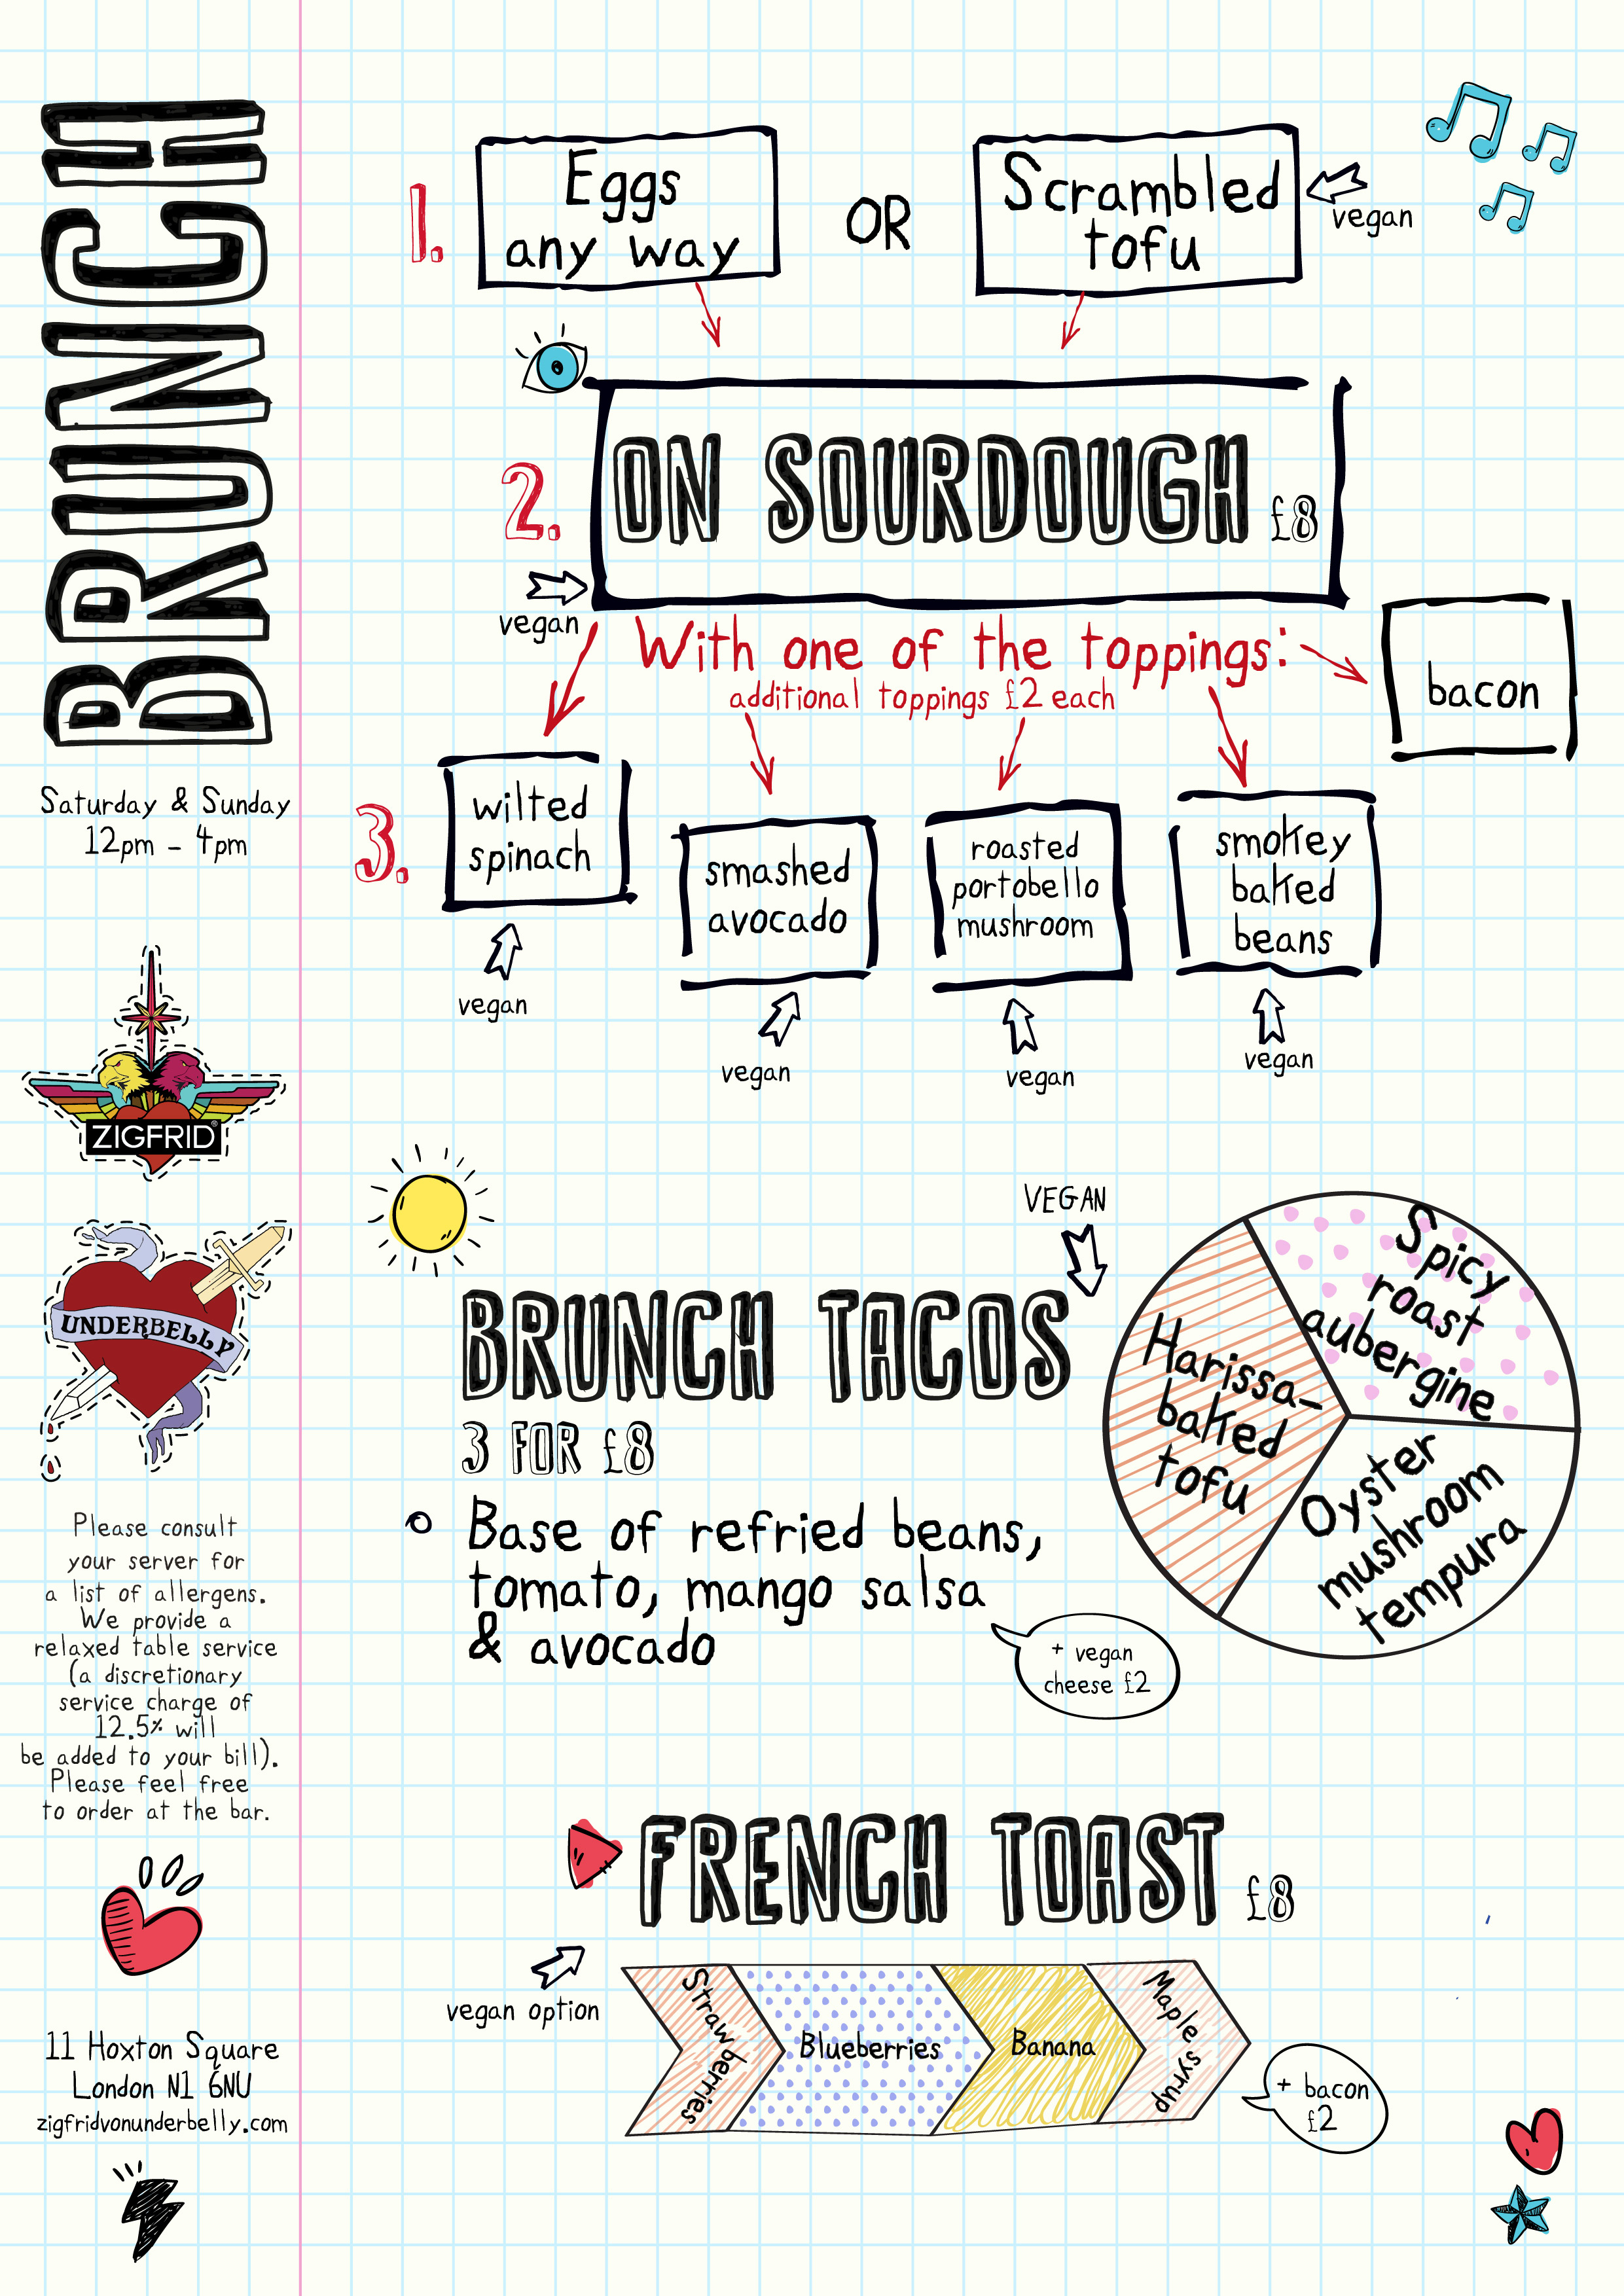 BRUNCH
Saturday & Sunday
12pm - 4pm
ZIGFRID®
UNDERBELLY
Please consult
your server for
a list of allergens.
We provide a
relaxed table service
(a discretionary
service charge of
12.5% will
be added to your bill).
Please feel free
to order at the bar.
11 Hoxton Square
London N1 6NU
zigfridvonunderbelly.com
1.
Eggs
any way
OR
Scrambled
tofu
vegan
2.
ON SOURDOUGH £8
vegan
With one of the toppings:
additional toppings £2 each
bacon
3.
wilted
spinach
vegan
smashed
avocado
vegan
roasted
portobello
mushroom
vegan
smokey
baked
beans
vegan
VEGAN
BRUNCH TACOS
3 FOR £8
Base of refried beans,
tomato, mango salsa
& avocado
+ vegan
cheese £2
Harissa-
baked
tofu
Spicy
roast
aubergine
Oyster
mushroom
tempura
FRENCH TOAST £8
vegan option
Strawberries
Blueberries
Banana
Maple syrup
+ bacon
£2